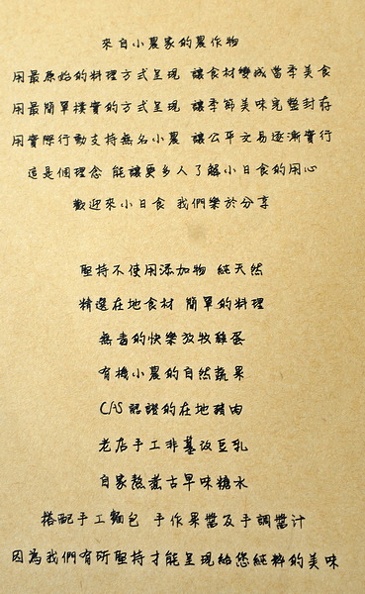 來自小農家的農作物
用最原始的料理方式呈現 讓食材變成當季美食
用最簡單樸實的方式呈現 讓季節美味完整封存
用實際行動支持無名小農 讓公平交易逐漸實行
這是個理念 能讓更多人了解小日食的用心
歡迎來小日食 我們樂於分享
堅持不使用添加物 純天然
精選在地食材 簡單的料理
無毒的快樂放牧雞蛋
有機小農的自然蔬果
CAS 認證的在地豬肉
老店手工非基改豆乳
自家熬煮古早味糖水
搭配手工麵包 手作果醬及手調醬汁
因為我們有所堅持才能呈現給您純粹的美味